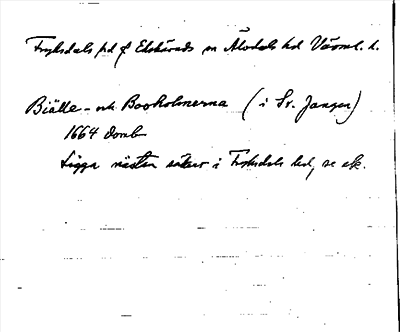 Fryksdals hd f Ekshärads sn Älvdals hd Värml. l.
Bjälle- och Bookolmerna (i St. Janger)
1664 Domb
Ligga nästan säkert i Fryksdals hd, se ek.